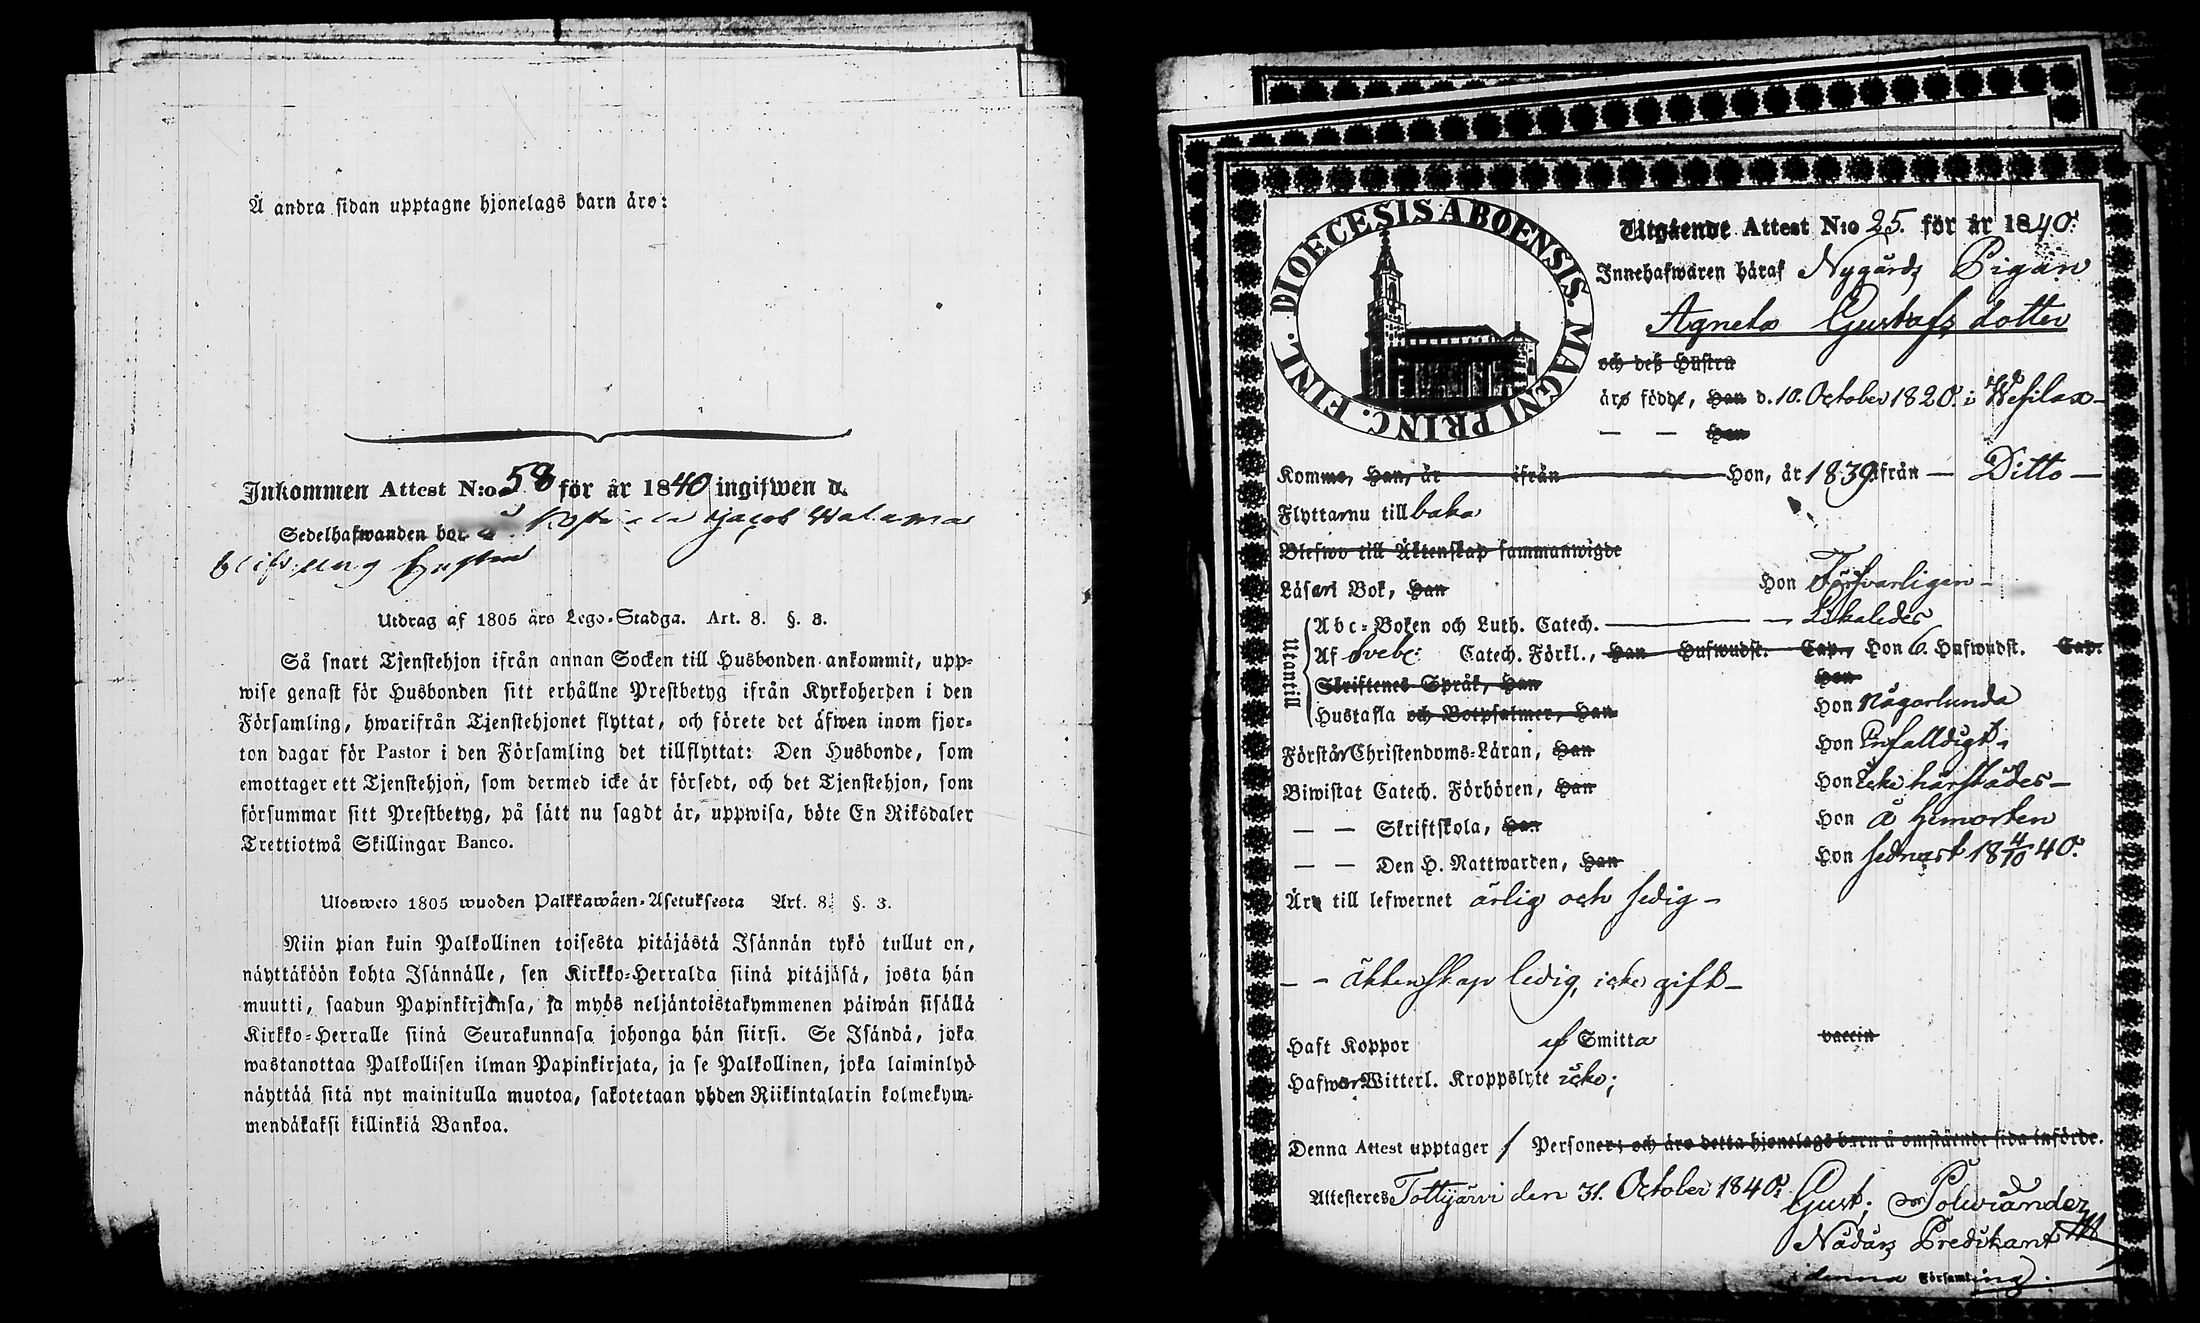 Å andra sidan upptagne hjonelags barn äro:
Inkommen Attest N:o 58 för år 1840 ingifwen d.
Sedelhafwanden bor Jacob
Utdrag af 1805 års Lego-Stadga. Art. 8. §. 3.
Så snart Tjenstehjon ifrån annan Socken till Husbonden ankommit, upp-
wise genast för Husbonden sitt erhållne Prestbetyg ifrån Kyrkoherden i den
Församling, hwarifrån Tjenstehjonet flyttat, och förete det äfwen inom fjor-
ton dagar för Pastor i den Församling det tillflyttat: Den Husbonde, som
emottager ett Tjenstehjon, som dermed icke är försedt, och det Tjenstehjon, som
försummar sitt Prestbetyg, på sätt nu sagdt är, uppwisa, böte En Riksdaler
Trettiotwå Skillingar Banco.
Ulosweto 1805 wuoden Palkkawäen-Asetuksesta Art. 8. §. 3.
Niin pian kuin Palkollinen toisesta pitäjästä Isännän tykö tullut on,
näyttäköön kohta Isännälle, sen Kirkko-Herralda siinä pitäjäsä, josta hän
muutti, saadun Papinkirjansa, ja myös neljäntoistakymmenen päiwän sisällä
Kirkko-Herralle siinä Seurakunnasa johonga hän siirsi. Se Isändä, joka
wastanottaa Palkollisen ilman Papinkirjata, ja se Palkollinen, joka laiminlyö
näyttää sitä nyt mainitulla muotoa, sakotetaan yhden Riikintalarin kolmekym-
mendäkaksi killinkiä Bankoa.
DIOECESIS ABOENSIS. MAGNI PRINC. FINL.
Utgående Attest N:o 25. för år 1840.
Innehafwaren häraf Nygårds Pigan
Agneta Gustafs dotter
och deß Hustru
äro födde, Han d. 10. October 1820. i Wesilax
— — Hon
Komme, Han, år ifrån Hon, år 1839 ifrån — Ditto —
Flyttar nu tillbaka
Blefwo till Äktenskap sammanwigde
Läser i Bok, Han Hon Försvarligen —
Utantill
Abc-Boken och Luth. Catech. — Likaledes
Af Svebe: Catech. Förkl., Han Hufwudst. Cap., Hon 6. Hufwudst. Cap.
Skriftenes Språk, Han Hon
Hustafla och Botpsalmer, Han Hon Någorlunda
Förstår Christendoms-Läran, Han Hon Enfalldigt.
Biwistat Catech. Förhören, Han Hon icke härstädes —
— — Skriftskola, Han Hon å hemorten
— — Den H. Nattwarden, Han Hon sednast 18 4/10 40.
Är till lefwernet ärlig och sedig —
— — äktenskap ledig, icke gift —
Haft Koppor af Smitta vaccin
Hafwer Witterl. Kroppslyte icke;
Denna Attest upptager 1 Personer; och äro detta hjonelags barn å omstående sida införde.
Attesteres Tottijärvi den 31. October 1840.
Gust. Polviander
Nådårs Predikant
i denna Församling.